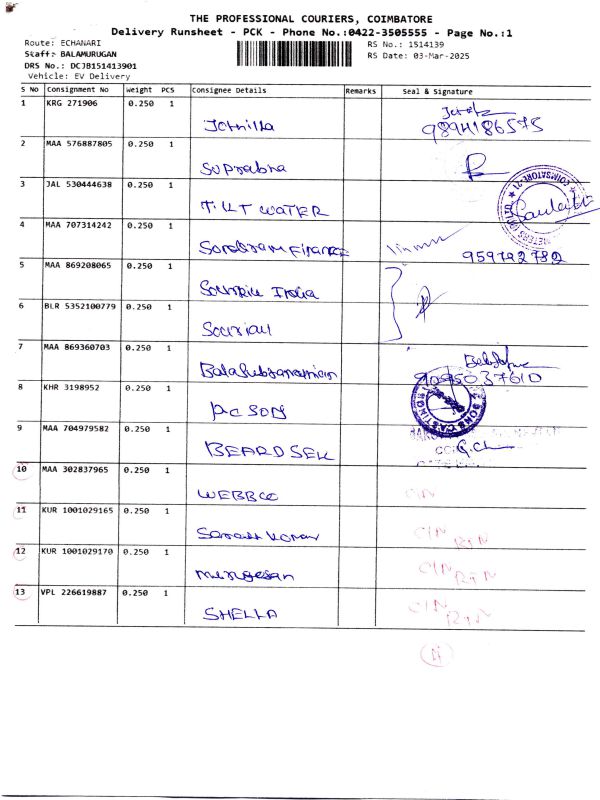 THE PROFESSIONAL COURIERS, COIMBATORE
Delivery Runsheet - PCK - Phone No.:0422-3505555 - Page No.:1
Route: ECHANARI RS No.: 1514139
Staff: BALAMURUGAN RS Date: 03-Mar-2025
DRS No.: DCJB151413901
Vehicle: EV Delivery
S No Consignment No Weight PCS Consignee Details Remarks Seal & Signature
1 KRG 271906 0.250 1
Jothilla 9894186575
2 MAA 576887805 0.250 1
Suprabha
3 JAL 530444638 0.250 1
TILT WATER
4 MAA 707314242 0.250 1
Sondaram Finance 959792782
5 MAA 869208065 0.250 1
India
6 BLR 5352100779 0.250 1
Souriau
7 MAA 869360703 0.250 1
Balasubramaniam 9095037610
8 KHR 3198952 0.250 1
PC SON
9 MAA 704979582 0.250 1
BEARDSELL
10 MAA 302837965 0.250 1
WEBBCO C/N
11 KUR 1001029165 0.250 1
C/N RTN
12 KUR 1001029170 0.250 1
Murugesan C/N RTN
13 VPL 226619887 0.250 1
SHELLA C/N RTN